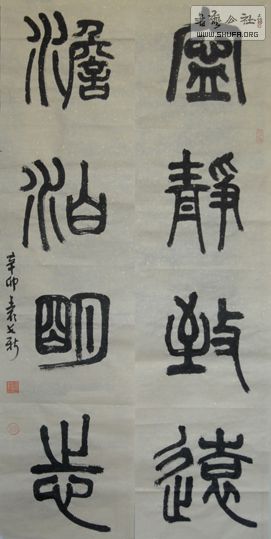 寧靜致遠
澹泊明志
辛卯
书艺公社
WWW.SHUFA.ORG